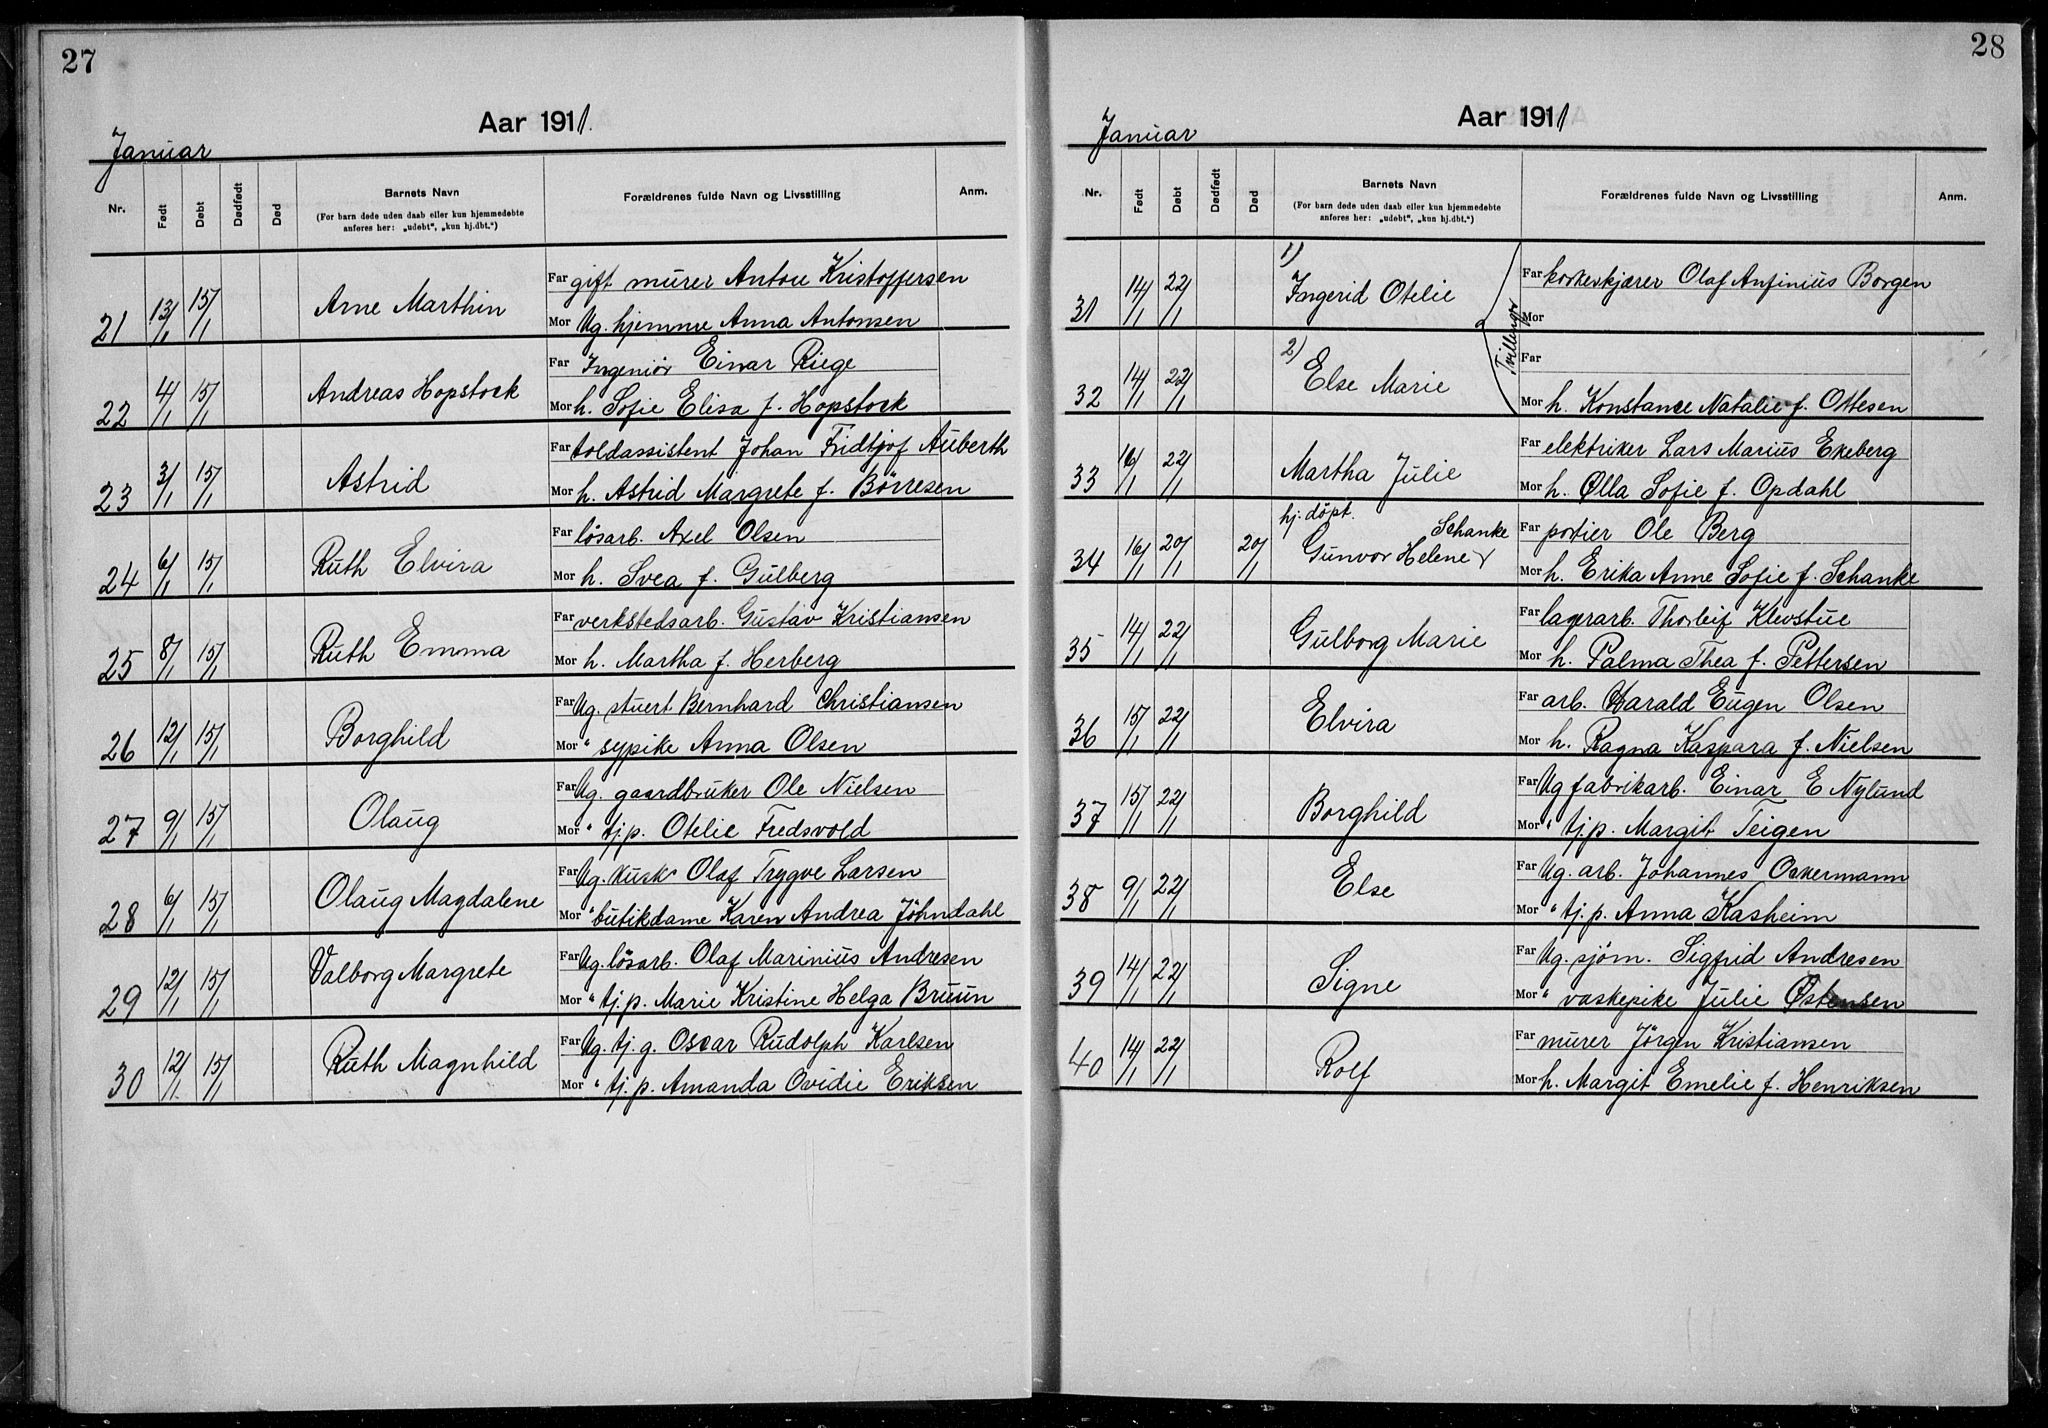 27
Aar 1911.
Januar
Nr. Født Døbt Dødfødt Død Barnets Navn Forældrenes fulde Navn og Livsstilling Anm.
(For barn døde uden daab eller kun hjemmedøbte
anføres her: „udøbt", „kun hj.dbt.")
21 13/1 15/1 Arne Marthin Far gift murer Anton Kristoffersen
Mor Ug. hjemme Anna Antonsen
22 4/1 15/1 Andreas Hopstock Far Ingeniör Einar Riege
Mor h. Sofie Elisa f. Hopstock
23 3/1 15/1 Astrid Far toldassistent Johan Fridtjof Auberth
Mor h. Astrid Margrete f. Börresen
24 6/1 15/1 Ruth Elvira Far lösarb. Axel Olsen
Mor h. Svea f. Gulberg
25 8/1 15/1 Ruth Emma Far verkstedsarb. Gustav Kristiansen
Mor h. Martha f. Herberg
26 12/1 15/1 Borghild Far Ug. stuert Bernhard Christiansen
Mor " sypike Anna Olsen
27 9/1 15/1 Olaug Far Ug. gaardbruker Ole Nielsen
Mor " tj.p. Otelie Fredsvold
28 6/1 15/1 Olaug Magdalene Far Ug. kusk Olaf Trygve Larsen
Mor " butikdame Karen Andrea Jöhndahl
29 12/1 15/1 Valborg Margrete Far Ug. lösarb. Olaf Marinius Andresen
Mor " tj.p. Marie Kristine Helga Bruun
30 12/1 15/1 Ruth Magnhild Far Ug. tj.g. Oscar Rudolph Karlsen
Mor " tj.p. Amanda Ovidie Eriksen
28
Aar 1911
Januar
Nr. Født Døbt Dødfødt Død Barnets Navn Forældrenes fulde Navn og Livsstilling Anm.
(For barn døde uden daab eller kun hjemmedøbte
anføres her: „udøbt", „kun hj.dbt.")
31 14/1 22/1 1) Ingerid Otelie Far korkeskjærer Olaf Anfinius Borgen
Mor
Tvillinger
32 14/1 22/1 2) Else Marie Far
Mor h. Konstance Natalie f. Ottesen
33 16/1 22/1 Martha Julie Far elektriker Lars Marius Ekeberg
Mor h. Ølla Sofie f. Opdahl
hj. döpt.
34 16/1 20/1 20/1 Gunvor Helene Schanke Far portier Ole Berg
Mor h. Erika Anne Sofie f. Schanke
35 14/1 22/1 Gulborg Marie Far lagerarb. Thorleif Klevstue
Mor h. Palma Thea f. Pettersen
36 15/1 22/1 Elvira Far arb. Harald Eugen Olsen
Mor h. Ragna Kaspara f. Nielsen
37 15/1 22/1 Borghild Far Ug fabrikarb. Einar E Nylund
Mor " tj.p. Margit Teigen
38 9/1 22/1 Else Far Ug. arb. Johannes Ockermann
Mor " tj.p. Anna Kasheim
39 14/1 22/1 Signe Far Ug. sjøm. Sigfrid Andresen
Mor " vaskepike Julie Østensen
40 14/1 22/1 Rolf Far murer Jörgen Kristiansen
Mor h. Margit Emelie f. Henriksen